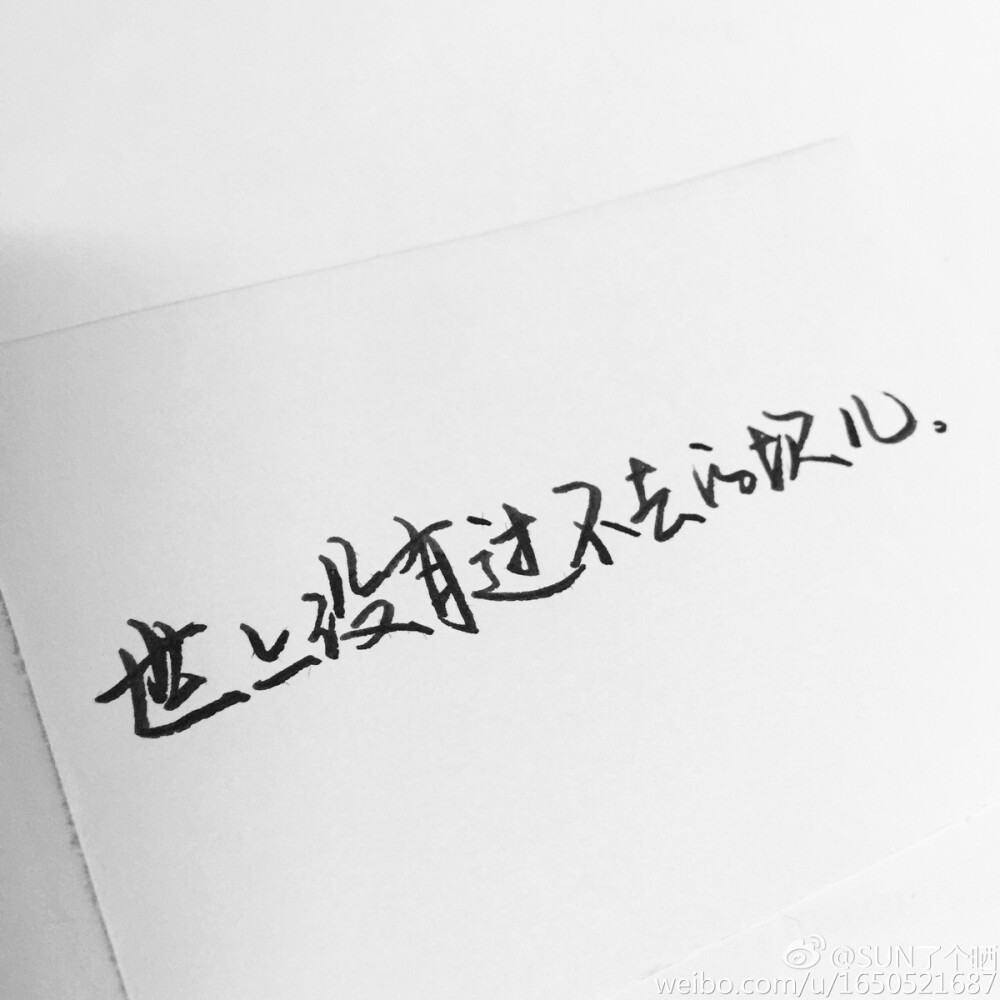 世上没有过不去的坎儿。
@SUN了个晒
weibo.com/u/1650521687